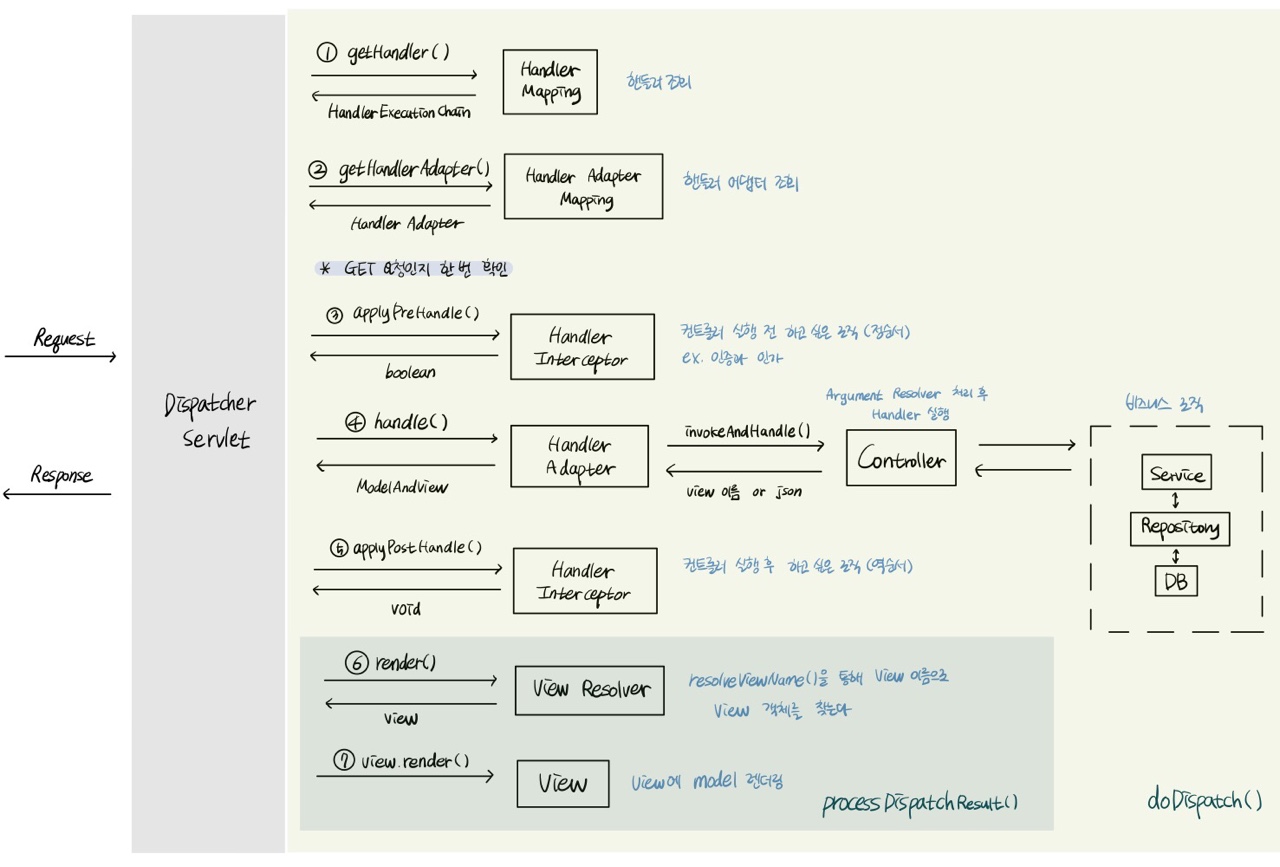 Request
Response
Dispatcher
Servlet
① getHandler()
HandlerExecutionChain
Handler
Mapping
핸들러 조회
② getHandlerAdapter()
Handler Adapter
Handler Adapter
Mapping
핸들러 어댑터 조회
* GET 요청인지 한 번 확인
③ applyPreHandle()
boolean
Handler
Interceptor
컨트롤러 실행 전 하고 싶은 로직 (정순서)
ex. 인증과 인가
④ handle()
ModelAndView
Handler
Adapter
invokeAndHandle()
view 이름 or json
Argument Resolver 처리 후
Handler 실행
Controller
비즈니스 로직
Service
Repository
DB
⑤ applyPostHandle()
void
Handler
Interceptor
컨트롤러 실행 후 하고 싶은 로직 (역순서)
⑥ render()
view
View Resolver
resolveViewName()을 통해 View 이름으로
View 객체를 찾는다
⑦ view.render()
View
View에 model 렌더링
processDispatchResult()
doDispatch()